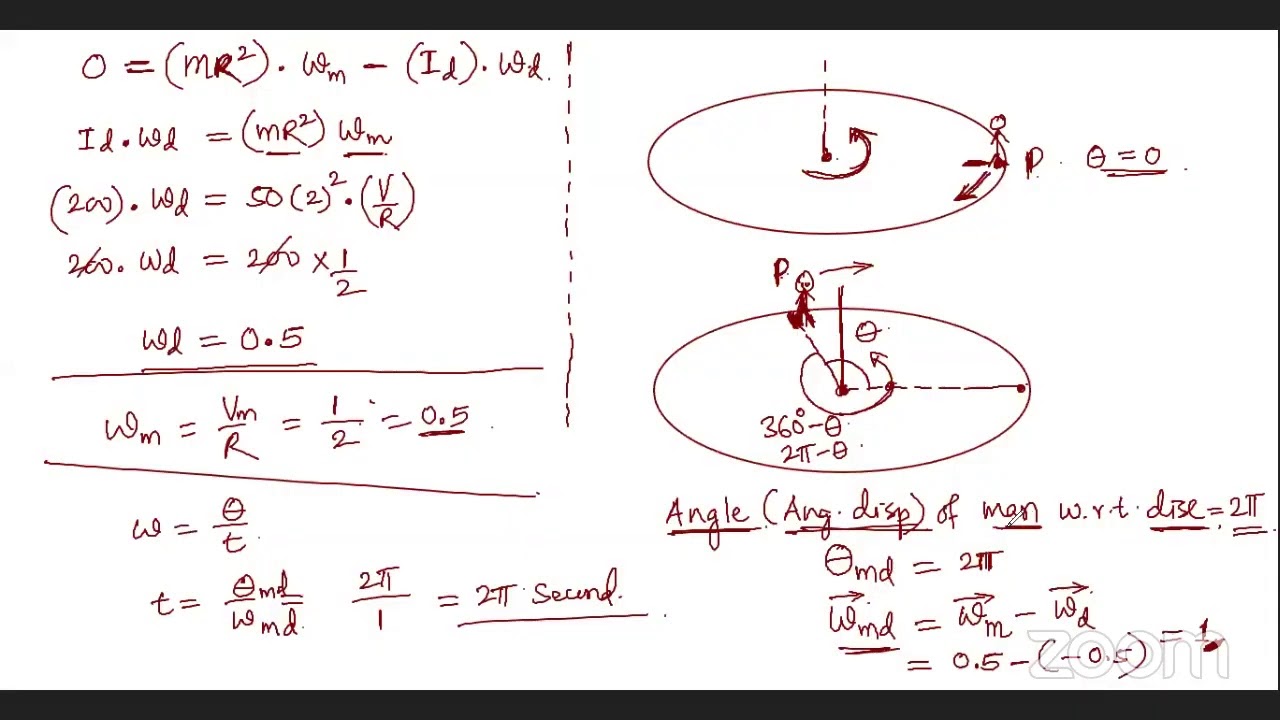 0 = (mR²) · ωm − (Id) · ωd.
Id · ωd = (mR²) ωm
(200) · ωd = 50 (2)² · (V/R)
200 · ωd = 200 × 1/2
ωd = 0.5
ωm = Vm/R = 1/2 = 0.5
ω = θ/t
t = θmd/ωmd 2π/1 = 2π Second.
P. θ = 0
P.
θ
360° − θ
2π − θ
Angle (Ang. disp) of man w.r.t. disc = 2π
θmd = 2π
ωmd = ωm − ωd
= 0.5 − (−0.5) = 1
zoom